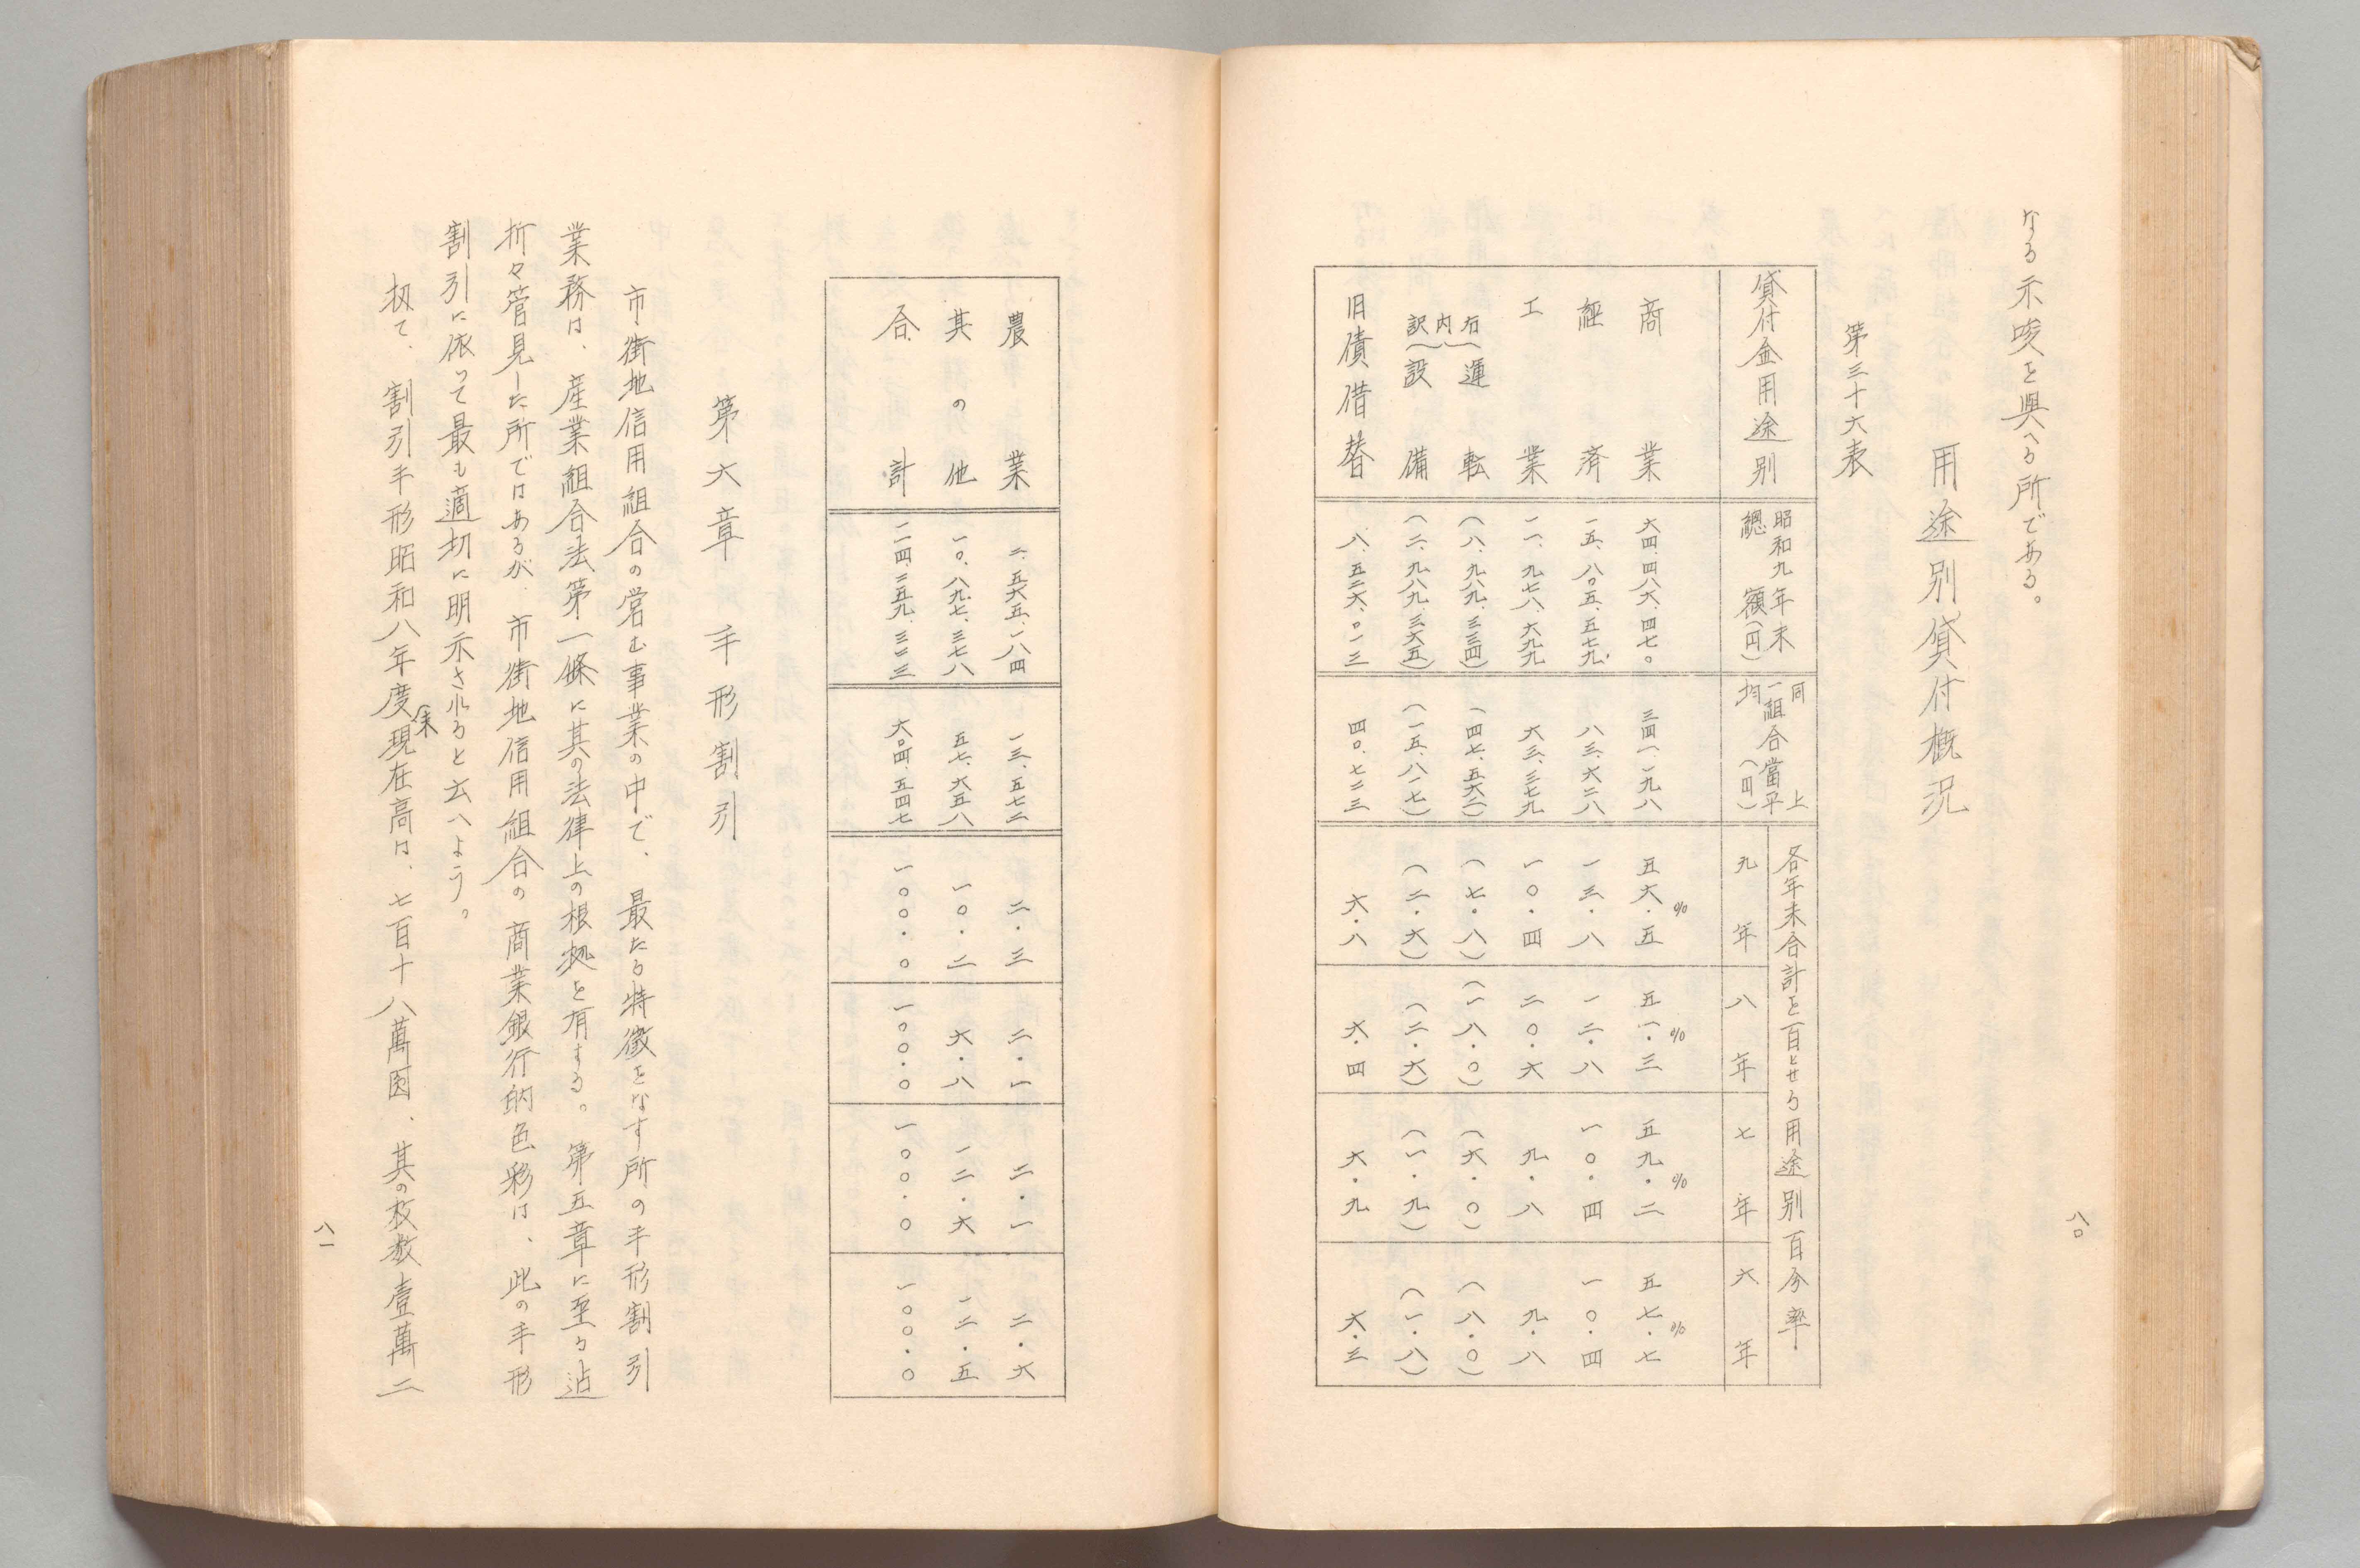 なる示唆を與へる所である。
用途別貸付概況
第三十六表
貸付金用途別
昭和九年末
總額(円)
同上
一組合當平
均(円)
各年末合計を百とせる用途別百分率
九年
八年
七年
六年
商業
六四、四八六、四七〇
三四一、一九八
五六・五%
五一・三%
五九・二%
五七・七%
経済
一五、八〇五、五七九
八三、六二八
一三・八
一二・八
一〇・四
一〇・四
工業
一一、九七八、六九九
六三、三七九
一〇・四
二〇・六
九・八
九・八
右内訳
運転
(八、九八九、三三四)
(四七、五六二)
(七・八)
(一八・〇)
(六・〇)
(八・〇)
設備
(二、九八九、三六五)
(一五、八一七)
(二・六)
(二・六)
(一・九)
(一・八)
旧債借替
八、五二六、〇一三
四〇、七二三
六・八
六・四
六・九
六・三
八〇
農業
二、五六五、一八四
一三、五七二
二・三
二・一
二・一
二・六
其の他
一〇、八九七、三七八
五七、六五八
一〇・二
六・八
一二・六
一二・五
合計
一一四、二五九、三二三
六〇四、五四七
一〇〇・〇
一〇〇・〇
一〇〇・〇
一〇〇・〇
第六章 手形割引
市街地信用組合の営む事業の中で、最たる特徴をなす所の手形割引
業務は、産業組合法第一條に其の法律上の根拠を有する。第五章に至る迠
折々管見した所ではあるが、市街地信用組合の商業銀行的色彩は、此の手形
割引に依って最も適切に明示されると云へよう。
扨て、割引手形昭和八年度末現在高は、七百十八萬圓、其の枚数壹萬二
八一